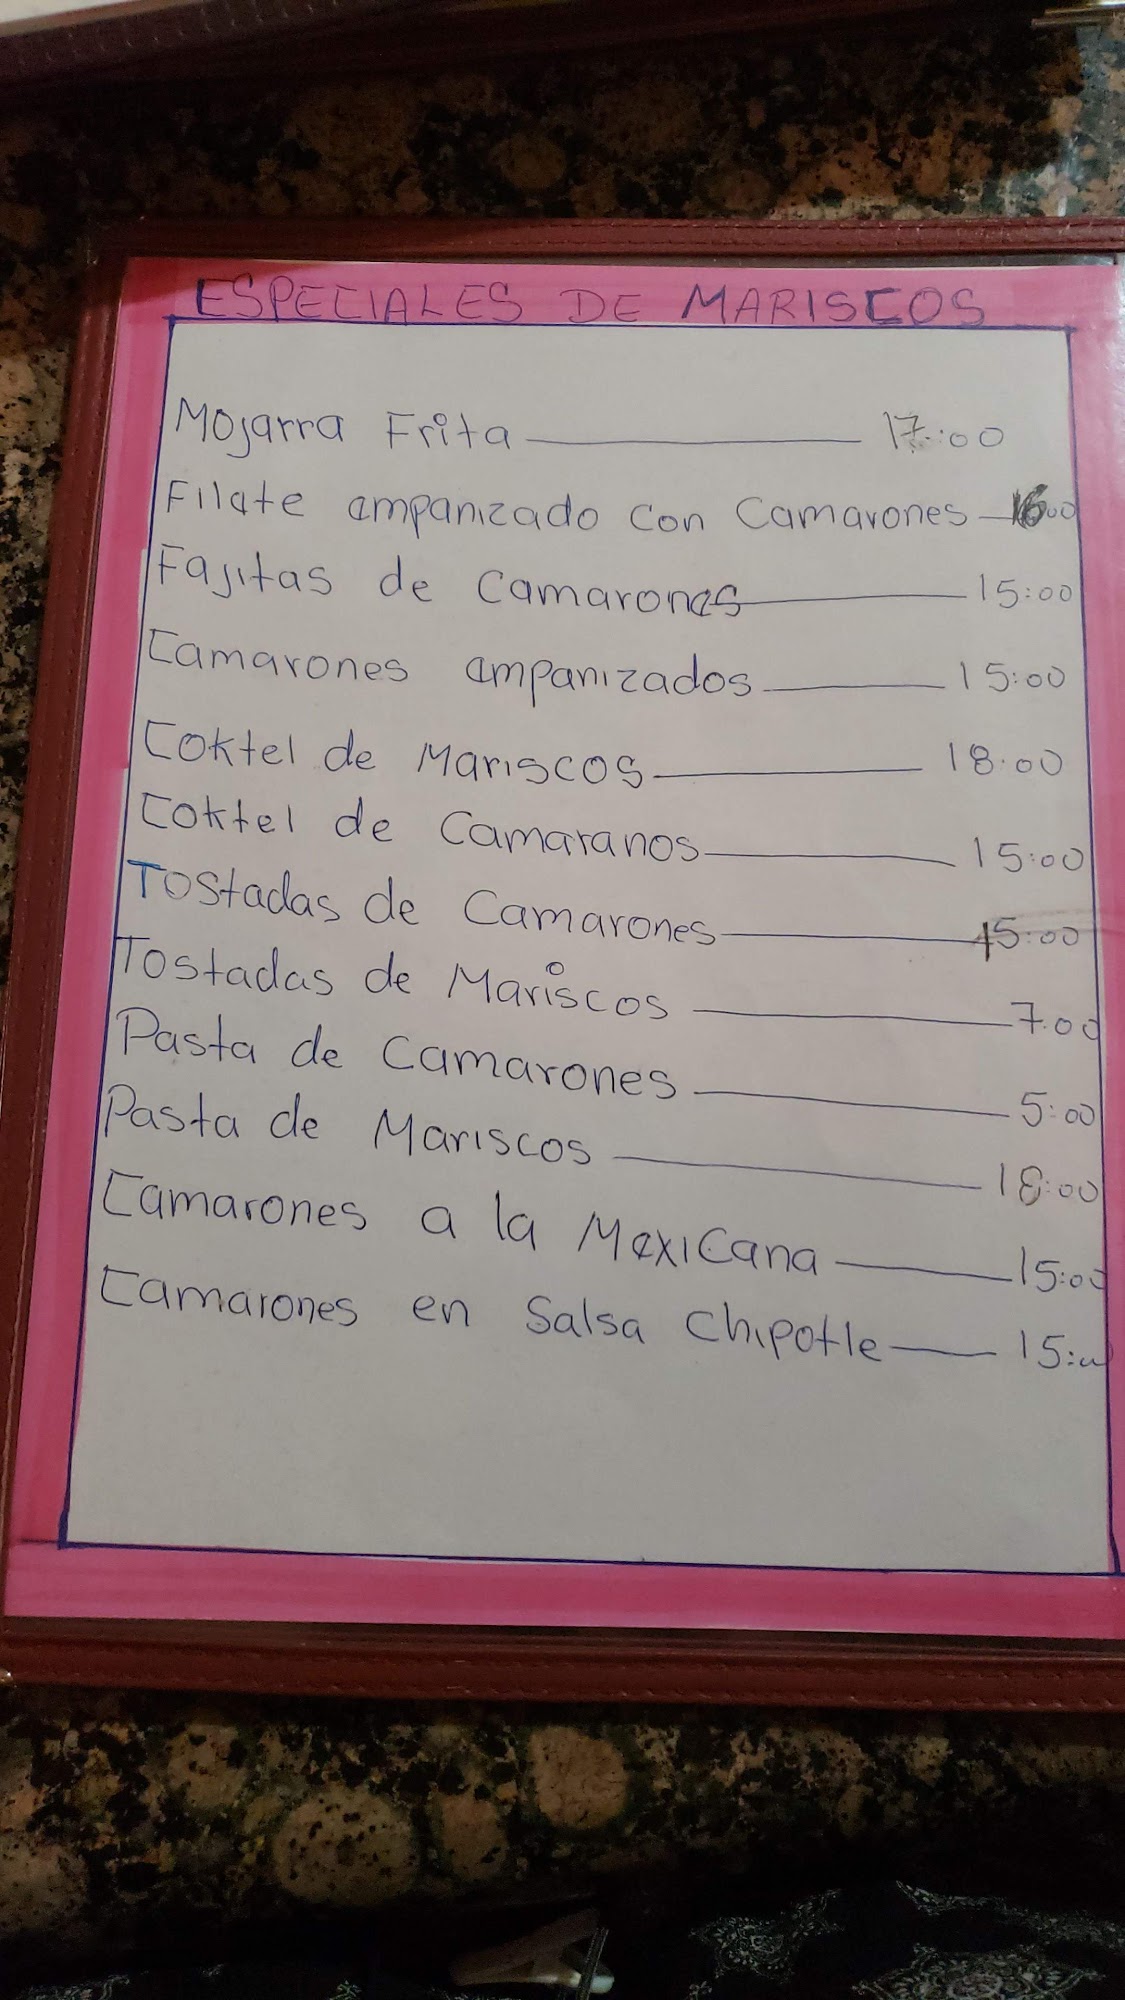 ESPECIALES DE MARISCOS
Mojarra Frita 17:00
Filate ampanizado con Camarones 16:00
Fajitas de Camarones 15:00
Camarones ampanizados 15:00
Coktel de Mariscos 18:00
Coktel de Camaranos 15:00
Tostadas de Camarones 15:00
Tostadas de Mariscos 7:00
Pasta de Camarones 5:00
Pasta de Mariscos 18:00
Camarones a la Mexicana 15:00
Camarones en Salsa Chipotle